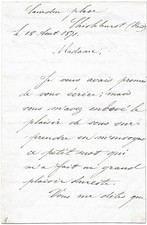 Camden place
Chislehurst
le 18 Aout 1871.
Madame,
Je vous avais promis
de vous écrire; mais
vous m'avez enlevé le
plaisir de vous sur
prendre en m'envoyant
ce petit mot qui
m'a fait un grand
plaisir
Vous me dites que